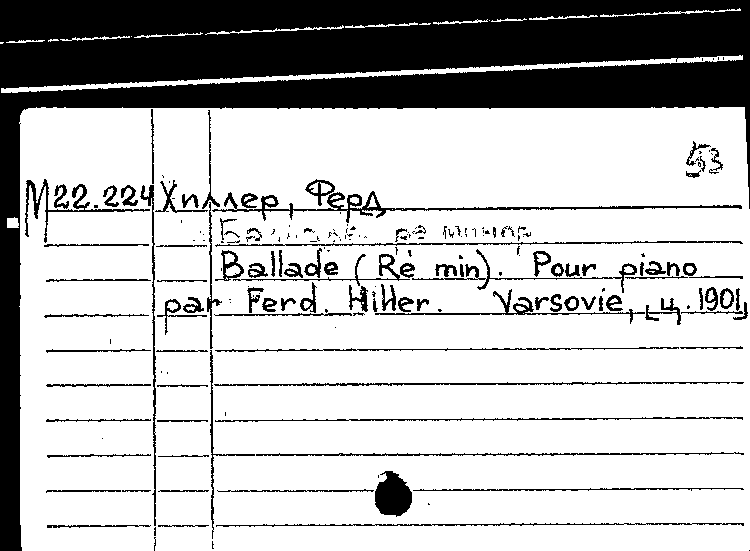 53
М22.224 Хиллер, Ферд
Баллада ре минор
Ballade (Ré min). Pour piano
par Ferd. Hiller. Varsovie, [ц. 1901]